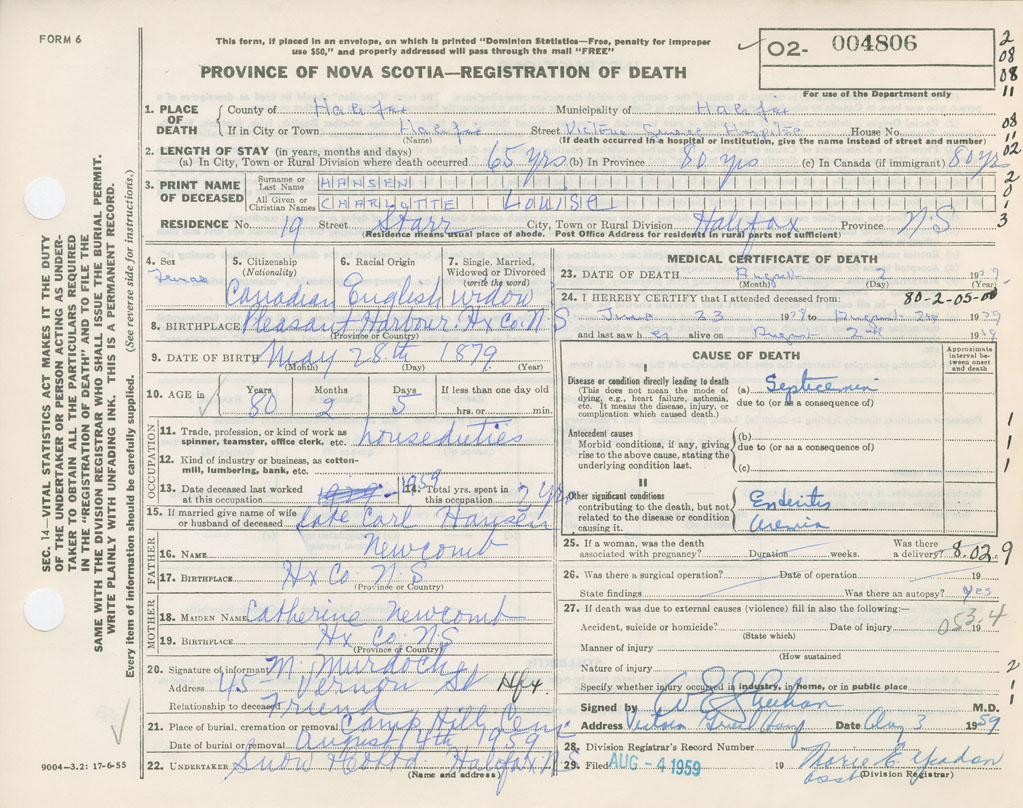 FORM 6
This form, if placed in an envelope, on which is printed "Dominion Statistics—Free, penalty for improper
use $50," and properly addressed will pass through the mail "FREE"
PROVINCE OF NOVA SCOTIA—REGISTRATION OF DEATH
02- 004806
For use of the Department only
2
08
08
11
08
11
02
2
0
1
3
SEC. 14—VITAL STATISTICS ACT MAKES IT THE DUTY
OF THE UNDERTAKER OR PERSON ACTING AS UNDER-
TAKER TO OBTAIN ALL THE PARTICULARS REQUIRED
IN THE "REGISTRATION OF DEATH" AND TO FILE THE
SAME WITH THE DIVISION REGISTRAR WHO SHALL ISSUE THE BURIAL PERMIT.
WRITE PLAINLY WITH UNFADING INK. THIS IS A PERMANENT RECORD.
Every item of information should be carefully supplied. (See reverse side for instructions.)
1. PLACE OF DEATH County of Halifax Municipality of Halifax
If in City or Town Halifax Street Victoria General Hospital House No.
(Name) (If death occurred in a hospital or institution, give the name instead of street and number)
2. LENGTH OF STAY (in years, months and days)
(a) In City, Town or Rural Division where death occurred 65 yrs (b) In Province 80 yrs (c) In Canada (if immigrant) 80 yrs
3. PRINT NAME OF DECEASED
Surname or Last Name HANSEN
All Given or Christian Names CHARLOTTE LOUISE
RESIDENCE No. 19 Street Starr City, Town or Rural Division Halifax Province N.S
(Residence means usual place of abode. Post Office Address for residents in rural parts not sufficient)
4. Sex Female
5. Citizenship (Nationality) Canadian
6. Racial Origin English
7. Single, Married, Widowed or Divorced (write the word) widow
8. BIRTHPLACE Pleasant Harbour. Hx Co. N S
(Province or Country)
9. DATE OF BIRTH May 28th 1879
(Month) (Day) (Year)
10. AGE in Years 80 Months 2 Days 5 If less than one day old hrs. or min.
OCCUPATION
11. Trade, profession, or kind of work as
spinner, teamster, office clerk, etc. houseduties
12. Kind of industry or business, as cotton-
mill, lumbering, bank, etc.
13. Date deceased last worked at this occupation 1959
14. Total yrs. spent in this occupation yrs
15. If married give name of wife
or husband of deceased late Carl Hansen
FATHER
16. NAME Newcomb
17. BIRTHPLACE Hx Co. N.S
(Province or Country)
MOTHER
18. MAIDEN NAME Catherine Newcomb
19. BIRTHPLACE Hx Co. N.S
(Province or Country)
20. Signature of informant M. Murdoch
Address 45 Vernon St Hfx
Relationship to deceased Friend
21. Place of burial, cremation or removal Camp Hill Cem
Date of burial or removal August 4th 1959
22. UNDERTAKER Snow Halifax
(Name and address)
9004—3.2: 17-6-55
MEDICAL CERTIFICATE OF DEATH
23. DATE OF DEATH August 2 1959
(Month) (Day) (Year)
24. I HEREBY CERTIFY that I attended deceased from: 80-2-05-00
June 23 1959 to August 2nd 1959
and last saw her alive on August 2nd 1959
CAUSE OF DEATH
Approximate interval between onset and death
I
Disease or condition directly leading to death
(This does not mean the mode of
dying, e.g., heart failure, asthenia,
etc. It means the disease, injury, or
complication which caused death.)
(a) Septicemia
due to (or as a consequence of)
Antecedent causes
Morbid conditions, if any, giving
rise to the above cause, stating the
underlying condition last.
(b)
due to (or as a consequence of)
(c)
1
1
1
II
Other significant conditions
contributing to the death, but not
related to the disease or condition
causing it.
25. If a woman, was the death
associated with pregnancy? Duration weeks. Was there a delivery? 8.02.9
26. Was there a surgical operation? Date of operation 19
State findings Was there an autopsy? yes
27. If death was due to external causes (violence) fill in also the following:—
Accident, suicide or homicide? Date of injury 19
053.4
(State which)
Manner of injury
(How sustained
Nature of injury
Specify whether injury occurred in industry, in home, or in public place
2
1
1
Signed by M.D.
Address Victoria Genl Hosp Date Aug 3 1959
28. Division Registrar's Record Number
29. Filed AUG - 4 1959 19 Marie E.
(Division Registrar)